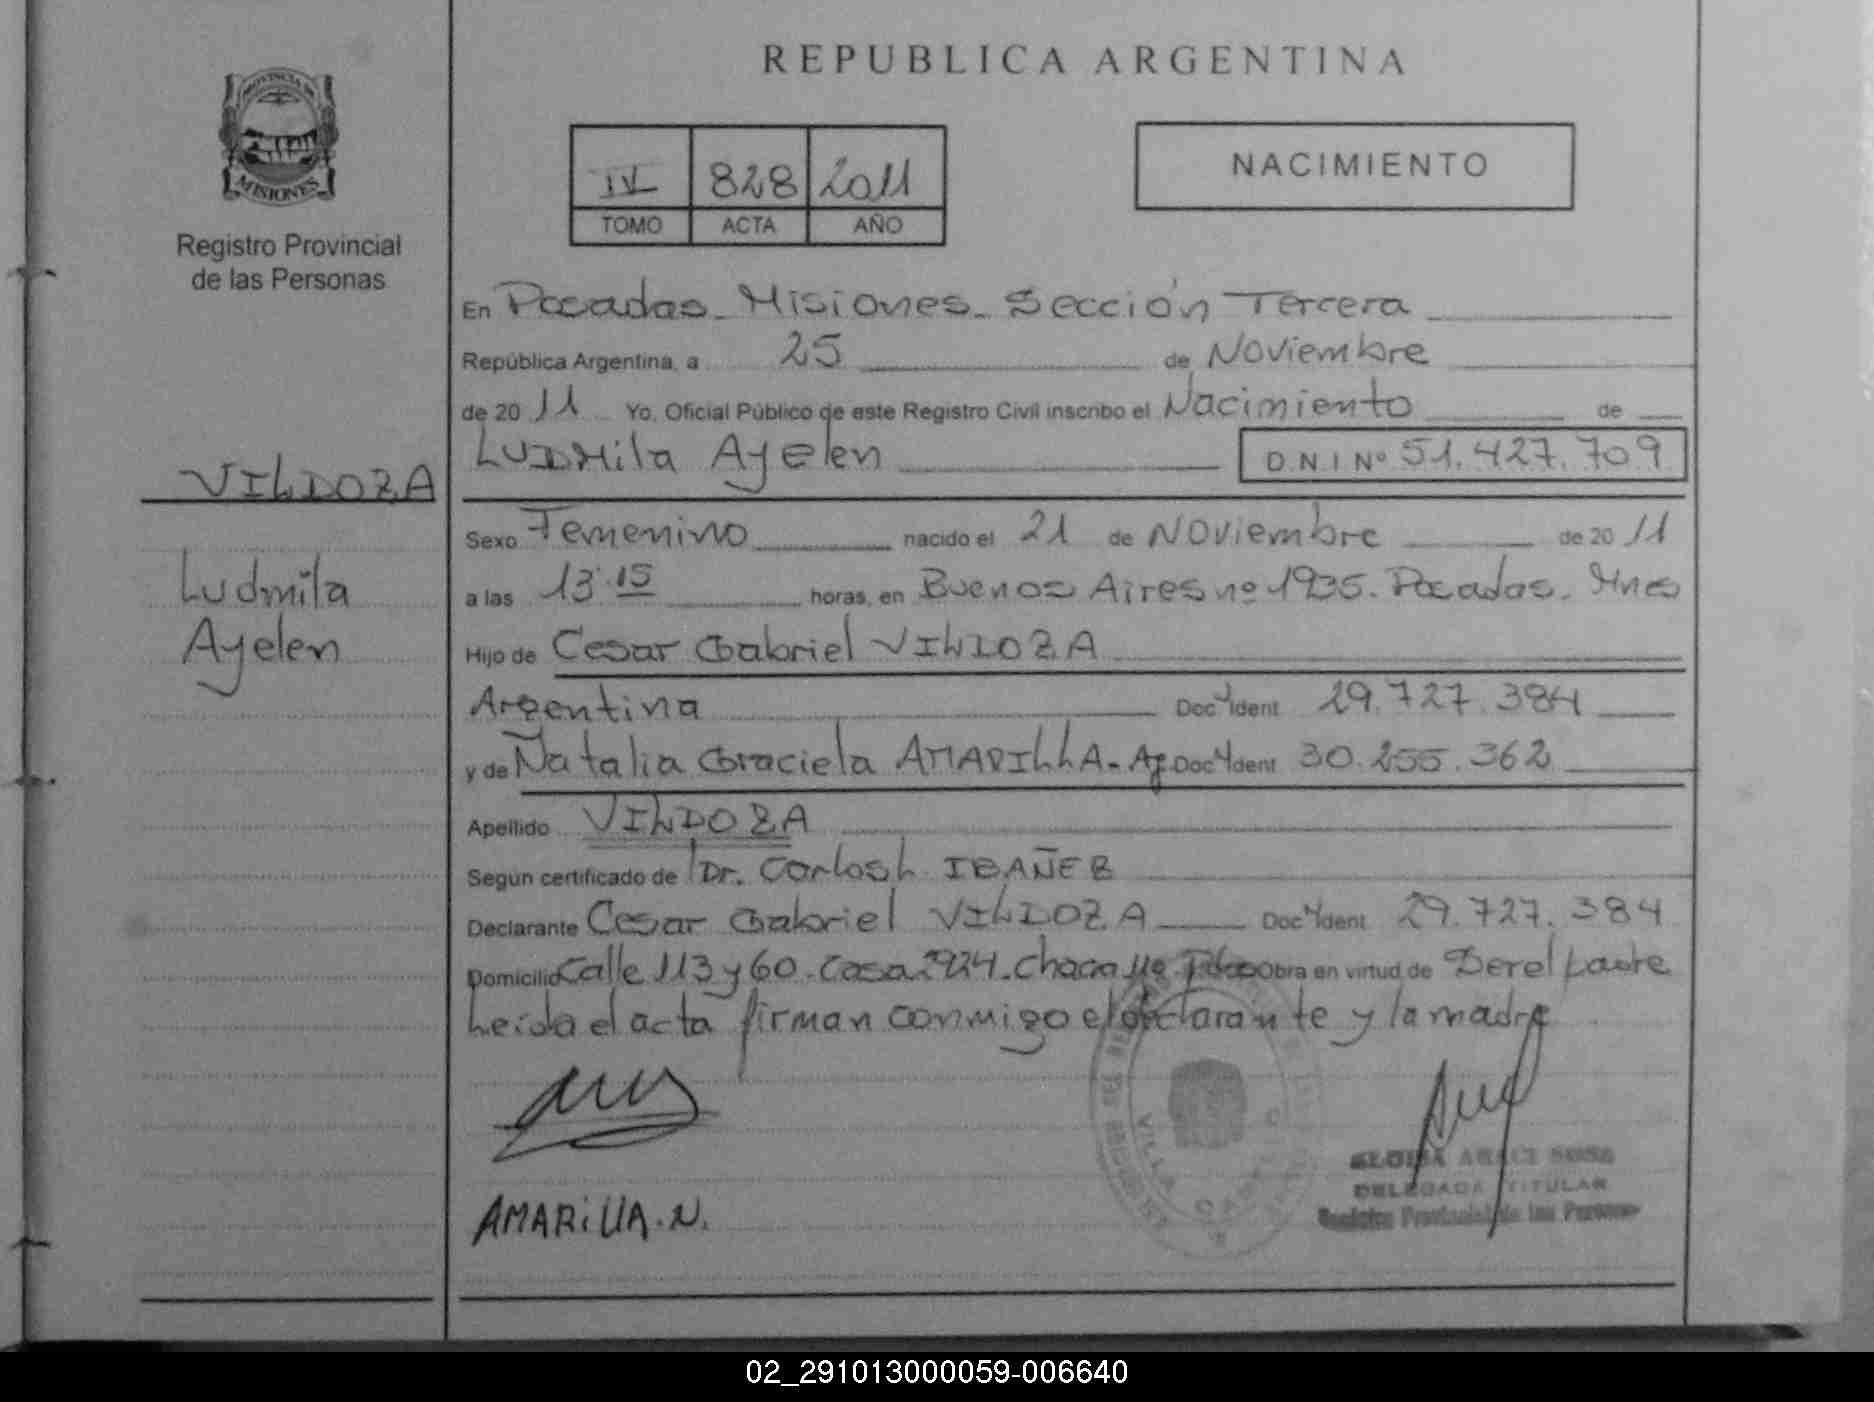 REPUBLICA ARGENTINA
PROVINCIA DE
MISIONES
Registro Provincial
de las Personas
IV 828 2011
TOMO ACTA AÑO
NACIMIENTO
En Posadas - Misiones - Sección Tercera
República Argentina, a 25 de Noviembre
de 20 11 Yo, Oficial Público de este Registro Civil inscribo el Nacimiento de
Ludmila Ayelen D.N.I Nº 51.427.709
VILDOZA
Ludmila
Ayelen
Sexo Femenino nacido el 21 de Noviembre de 20 11
a las 13:15 horas, en Buenos Aires nº 1935. Posadas. Mnes
Hijo de Cesar Gabriel VILDOZA
Argentina Doc Ident 29.727.384
y de Natalia Graciela AMARILLA - Ag. Doc Ident 30.255.362
Apellido VILDOZA
Segun certificado de Dr. Carlos L. IBAÑEZ
Declarante Cesar Gabriel VILDOZA Doc Ident 29.727.384
Domicilio Calle 113 y 60. Casa 2924. Chacra Obra en virtud de Ser el padre
Leida el acta firman conmigo el declarante y la madre
AMARILLA. N.
VILLA CABELLO
DELEGADA TITULAR
Registro Provincial de las Personas
02_291013000059-006640